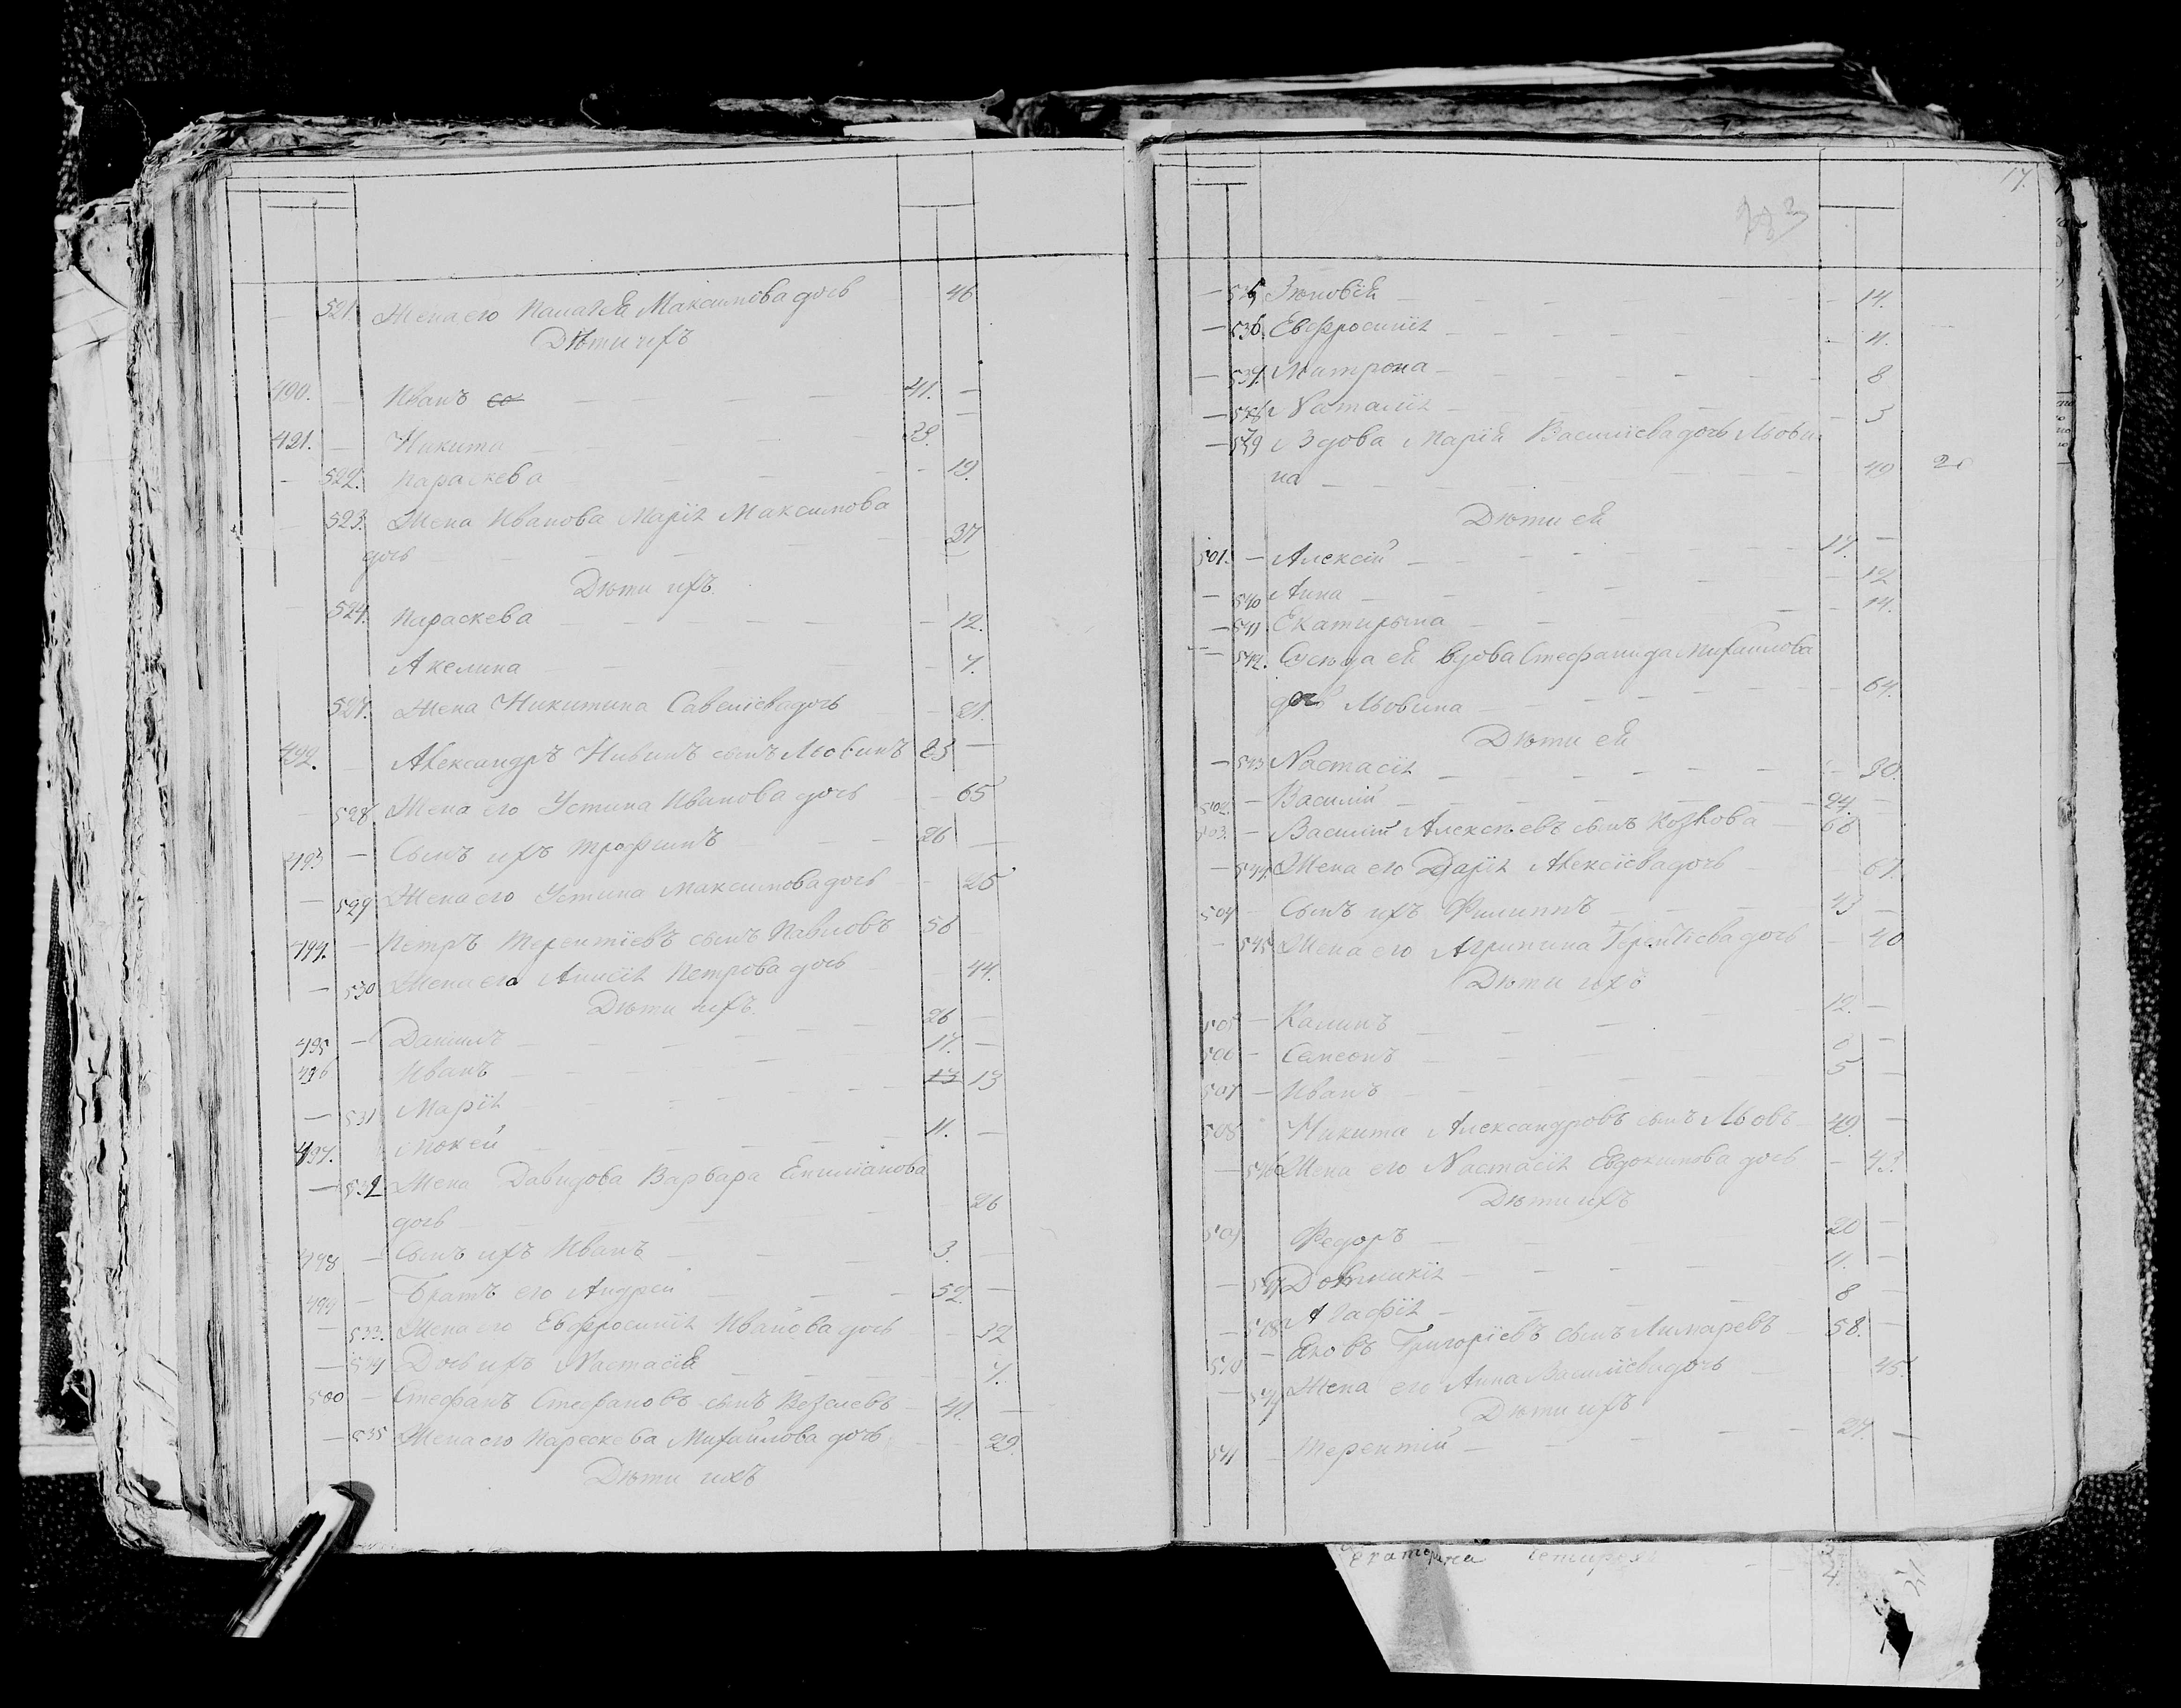 521. Жена его Палагія Максимова дочь 46
Дѣти ихъ
490. Иванъ 41.
421. Никита
522. Параскева 19.
523. Жена Иванова Марія Максимова
дочь 37
Дѣти ихъ
524. Параскева 12.
Акелина 7.
527. Жена Никитина Савеліева дочь 21.
492. Александръ сынъ Львовинъ
528. Жена его Устина Иванова дочь 65
493 Сынъ ихъ Трофимъ 26
529 Жена его Устина Максимова дочь 25
494. Петръ Терентіевъ сынъ Павловъ 56
530 Жена его Анисія Петрова дочь 44.
Дѣти ихъ
495 26
496 Иванъ 17.
531 Марія 13 13
497. Мокей 11.
532 Жена Давидова Варвара Епиміанова
дочь 26
498 Сынъ ихъ Иванъ 3.
499 Братъ его Андрей 52.
533. Жена его Евфросинія Иванова дочь 32
534 Дочь ихъ Настасія 7.
500 Стефанъ Стефановъ сынъ 41.
535 Жена его Параскева Михайлова дочь 29.
Дѣти ихъ
17.
Зѣновія 14.
536. Евфросинія 11.
537. Матрона 8
538 Наталія 3
539 Вдова Марія Василіева дочь Львови
на 40
Дѣти ей
501. Алексій 17.
540 Анна
541 Екатирына 14.
542. вдова Стефанида Михайлова
дочь Львовина 64.
Дѣти ей
543 Настасія 30.
502. Василій 24.
503. Василій Алексѣевъ сынъ Козкова 66
544. Жена его Дарія Алексіева дочь 61.
504 Сынъ ихъ Филиппъ 43
545 Жена его Агрипина дочь 40
Дѣти ихъ
505 Калинъ 12.
506 Самсонъ
507 Иванъ 5
508 Никита Александровъ сынъ Львовъ 49.
546 Жена его Настасія Евдокимова дочь 43.
Дѣти ихъ
509 Федоръ 20
547 Домникія 11.
548 Агафія 8
510 Яковъ Григоріевъ сынъ Лимаревъ 58.
549 Жена его Анна Василіева дочь 45.
Дѣти ихъ
511 Терентій 27.
Екатерина